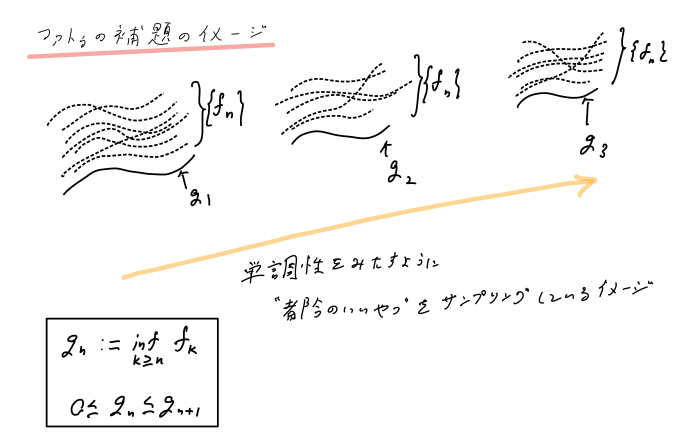 ファトゥの補題のイメージ
{fn}
{fn}
{fn}
g1
g2
g3
単調性をみたすように
"都合のいいやつ"をサンプリングしているイメージ
gn := inf fk
k≧n
0≦ gn ≦ gn+1